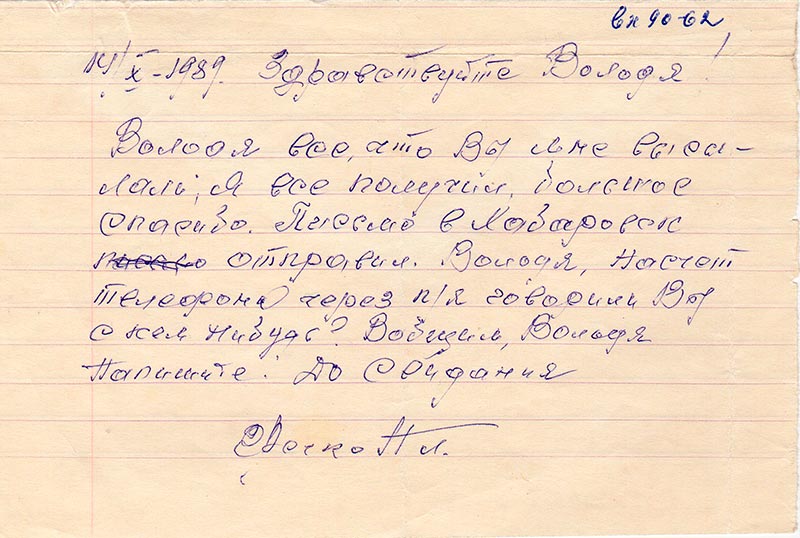 вх 90-62
14/X-1989. Здравствуйте Володя!
Володя все, что Вы мне высы-
лали, Я все получил, большое
спасибо. Письмо в Хабаровск
отправил. Володя, насчет
телефона через п/я говорили Вы
с кем нибудь? Вобщим, Володя
Напишите! До свидания